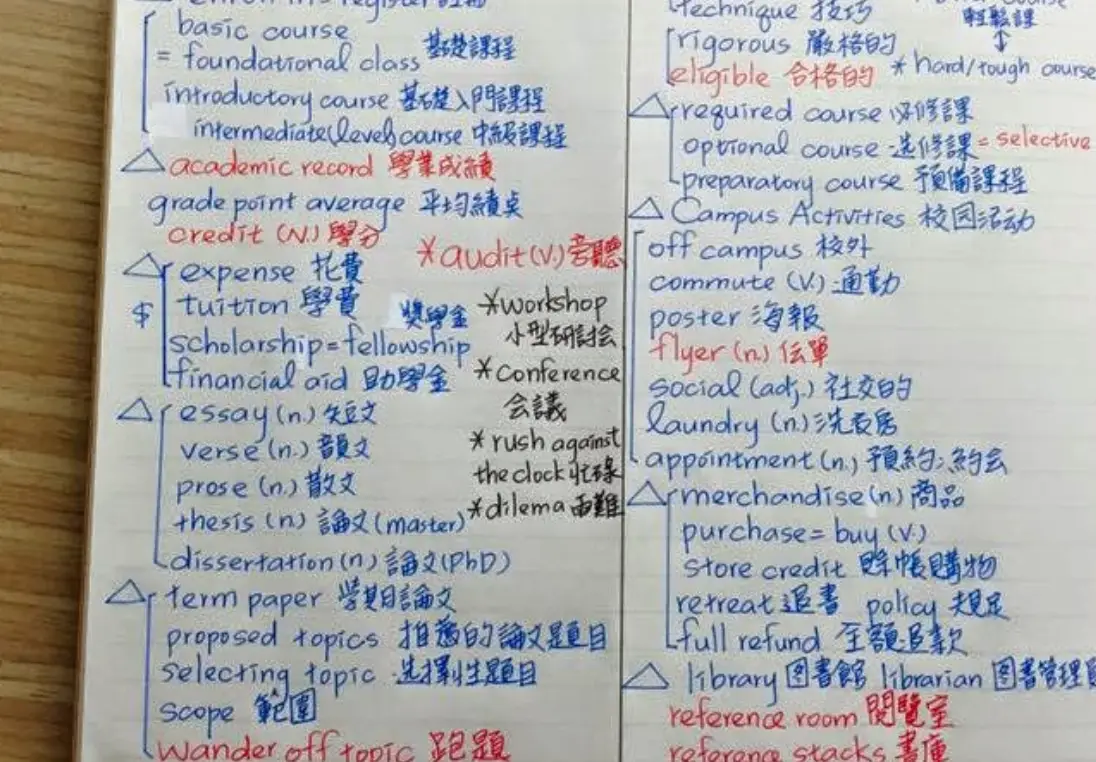 basic course
= foundational class 基礎課程
introductory course 基礎入門課程
intermediate(level) course 中級課程
△ academic record 學業成績
grade point average 平均績点
credit (N.) 學分
*audit (v.) 旁聽
△ expense 花費
$ tuition 學費
獎學金
scholarship = fellowship
financial aid 助學金
*workshop
小型研討会
*conference
会議
* rush against
the clock 忙碌
*dilema 両難
△ essay (n.) 短文
verse (n.) 韻文
prose (n.) 散文
thesis (n) 論文 (master)
dissertation (n) 論文 (PhD)
△ term paper 學期論文
proposed topics 推薦的論文題目
selecting topic 选擇性題目
scope 範圍
wander off topic 跑題
technique 技巧
輕鬆課
↕
rigorous 嚴格的
eligible 合格的 * hard/tough course
△ required course 必修課
optional course 选修課 = selective
preparatory course 預備課程
△ Campus Activities 校园活动
off campus 校外
commute (v.) 通勤
poster 海報
flyer (n.) 伝單
social (adj.) 社交的
laundry (n.) 洗衣房
appointment (n.) 預約; 約会
△ merchandise (n) 商品
purchase = buy (v.)
store credit 賒帳購物
retreat 退書 policy 規定
full refund 全額退款
△ library 図書館 librarian 図書管理員
reference room 閱覽室
reference stacks 書庫